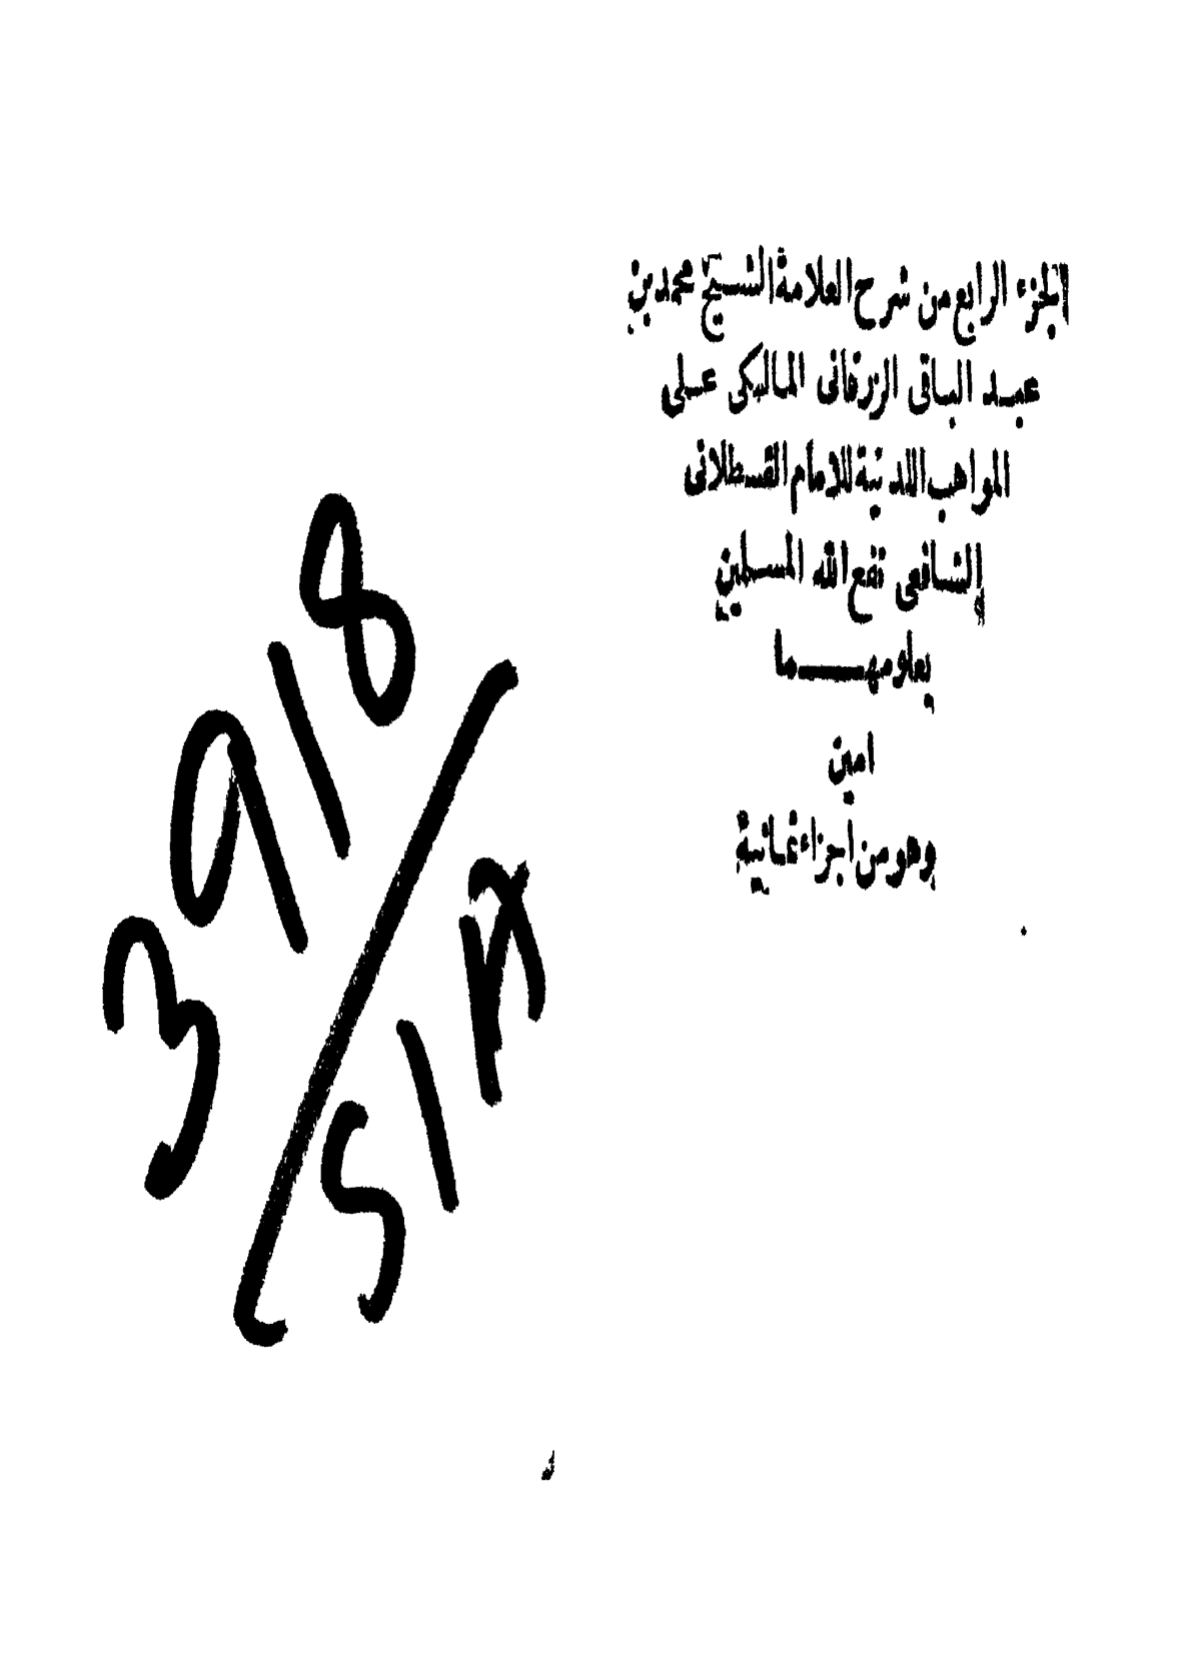 الجزء الرابع من شرح العلامة الشيخ محمد بن
عبد الباقى الزرقانى المالكى على
المواهب اللدنية للامام القسطلانى
الشافعى نفع الله المسلمين
بعلومهما
امين
وهو من اجزاء ثمانية
3918